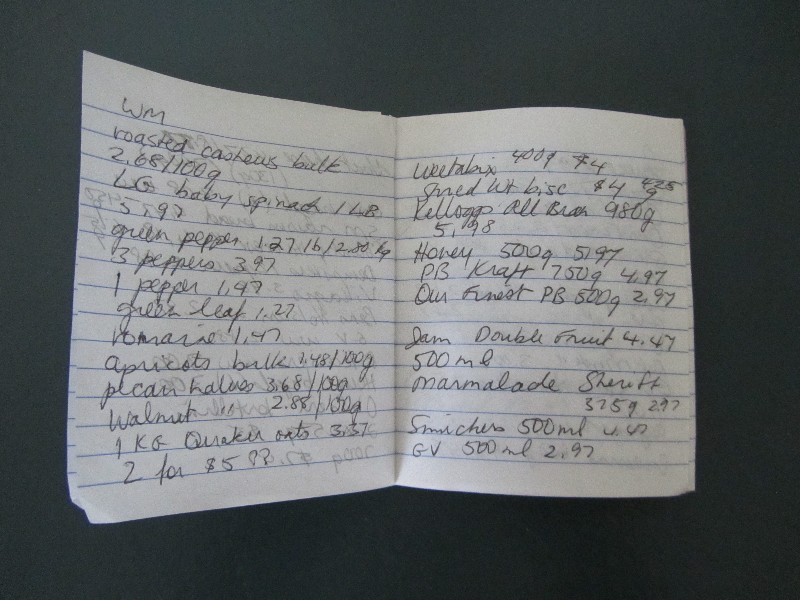 WM
roasted cashews bulk
2.68/100g
LG baby spinach 1 LB
5.97
green pepper 1.27 lb/2.80 kg
3 peppers 3.97
1 pepper 1.47
green leaf 1.27
romaine 1.47
apricots bulk 1.48/100g
pecan halves 3.68/100g
Walnut " 2.88/100g
1 KG Quaker oats 3.37
2 for $5 PP
Weetabix 400g $4
Shred Wt bisc $4 425
Kelloggs All Bran 980g
5.98
Honey 500g 5.97
PB Kraft 750g 4.97
Our Finest PB 500g 2.97
Jam Double Fruit 4.47
500 ml
Marmalade Sheriff
375g 2.97
Smuchers 500ml 4.47
GV 500 ml 2.97